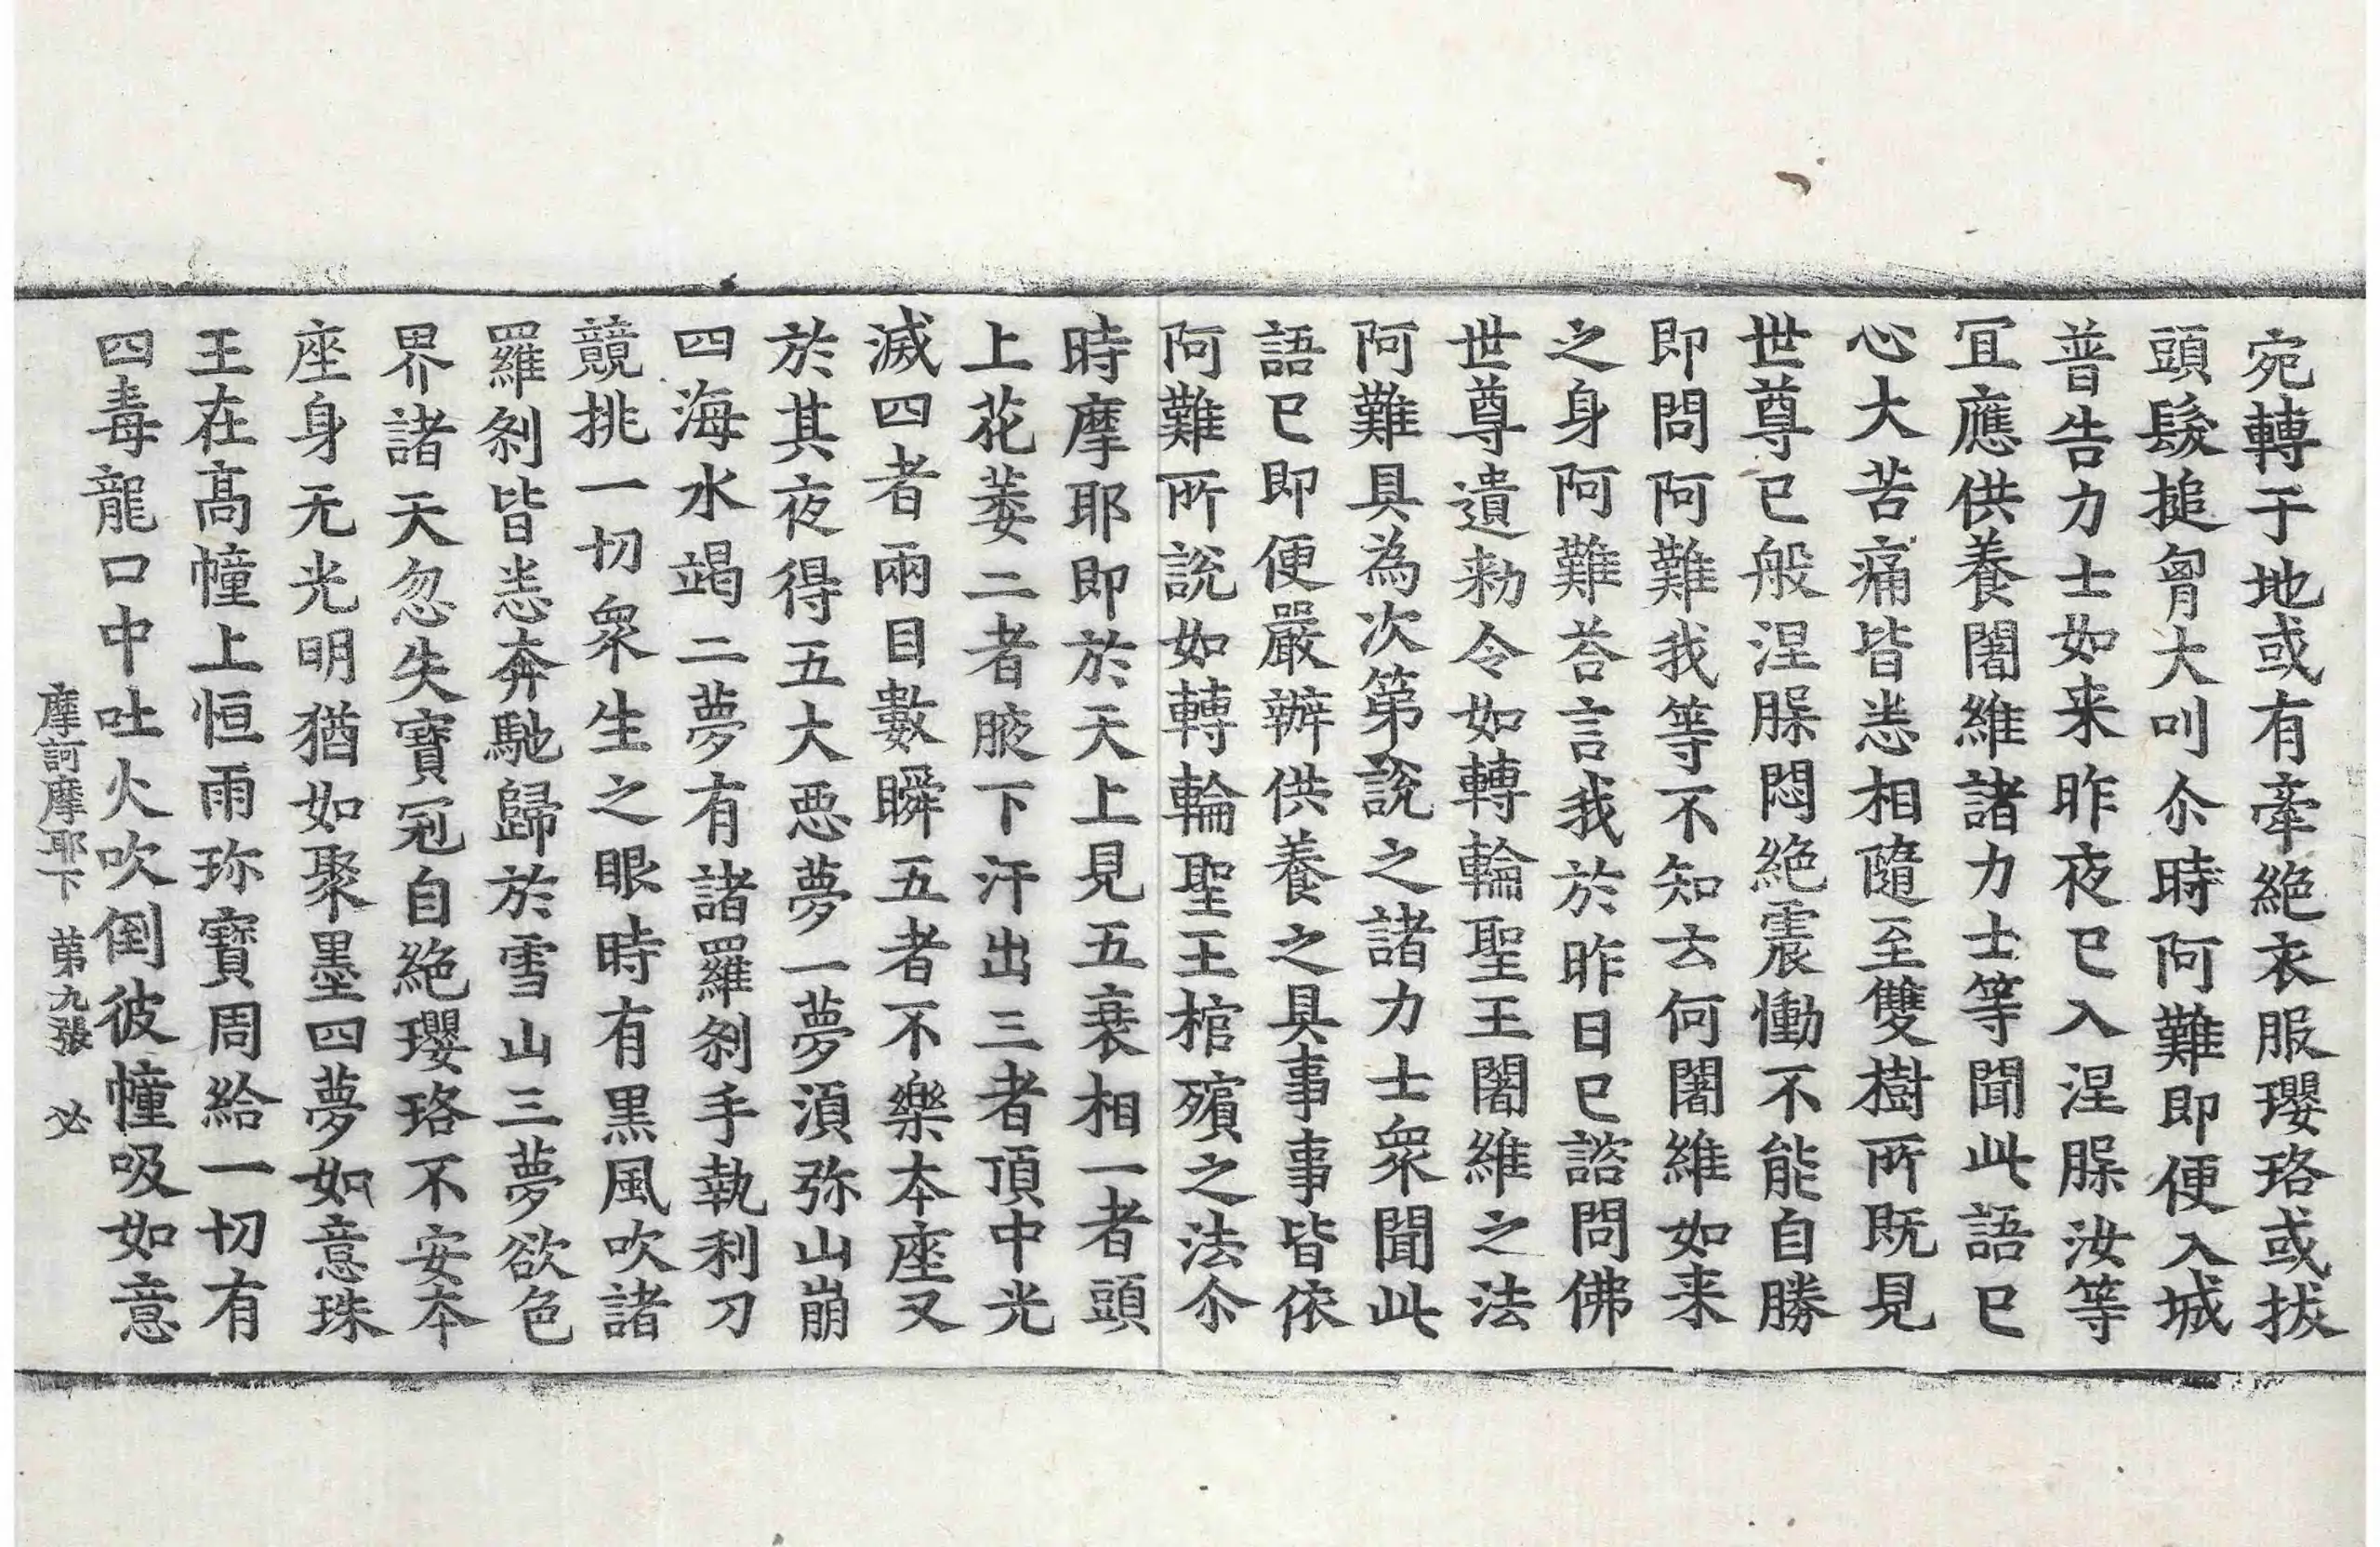 宛轉于地或有牽絶衣服瓔珞或拔
頭髮搥胷大叫尒時阿難即便入城
普告力士如来昨夜已入涅槃汝等
冝應供養闍維諸力士等聞此語已
心大苦痛皆悉相隨至雙樹所既見
世尊已般涅槃悶絶震慟不能自勝
即問阿難我等不知云何闍維如来
之身阿難荅言我於昨日已諮問佛
世尊遺勑令如轉輪聖王闍維之法
阿難具為次第說之諸力士衆聞此
語已即便嚴辦供養之具事事皆依
阿難所說如轉輪聖王棺殯之法尒
時摩耶即於天上見五衰相一者頭
上花萎二者腋下汗出三者頂中光
滅四者兩目數瞬五者不樂本座又
於其夜得五大惡夢一夢湏弥山崩
四海水竭二夢有諸羅剎手執利刀
競挑一切衆生之眼時有黒風吹諸
羅剎皆悉奔馳歸於雪山三夢欲色
界諸天忽失寶冠自絶瓔珞不安本
座身无光明猶如聚墨四夢如意珠
王在髙幢上恒雨珎寶周給一切有
四毒龍口中吐火吹倒彼幢吸如意
摩訶摩耶下 第九張 必